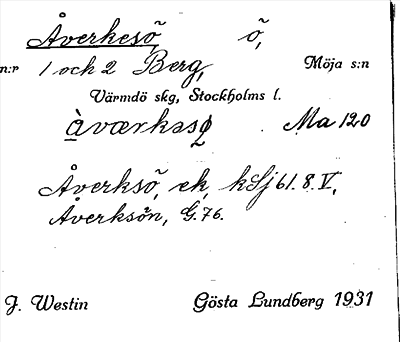 Åverkesö, ö,
n:r 1 och 2 Berg, Möja s:n
Värmdö skg, Stockholms l.
Ma 120
Åverksö, ek, kSj 61. 8. V,
Åverksön, G. 76.
J. Westin Gösta Lundberg 1931